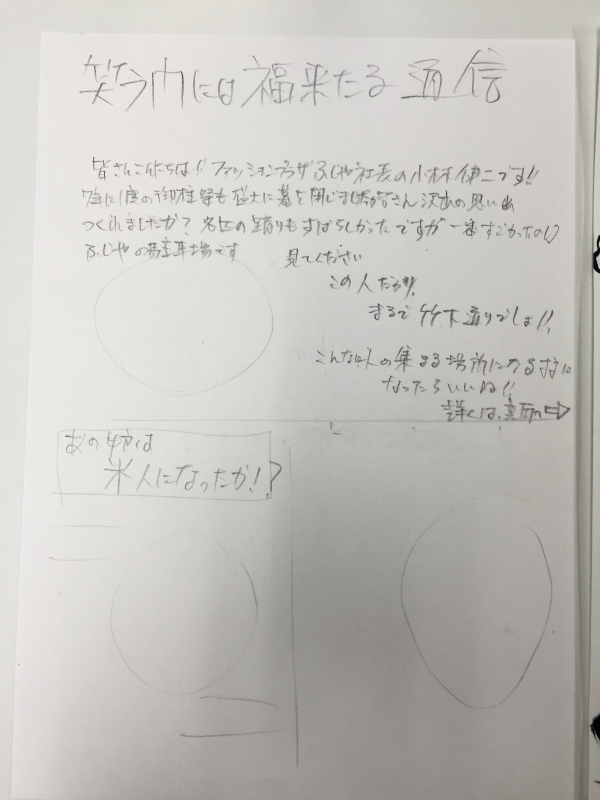 笑う門には福来たる通信
皆さんこんにちは!! ファッションプラザふじや社長の小林伸二です!!
7年に1度の御柱祭も盛大に幕を閉じましたが皆さん沢山の思い出
つくれましたか? 各区の踊りもすばらしかったですが一番すごかったのは
ふじやの駐車場です
見てください
この人だかり!!
まるで竹下通りでしょ!!
こんな人の集まる場所になる様に
なったらいいね!!
詳くは、裏面へ⇨
あの
米人になったか!?